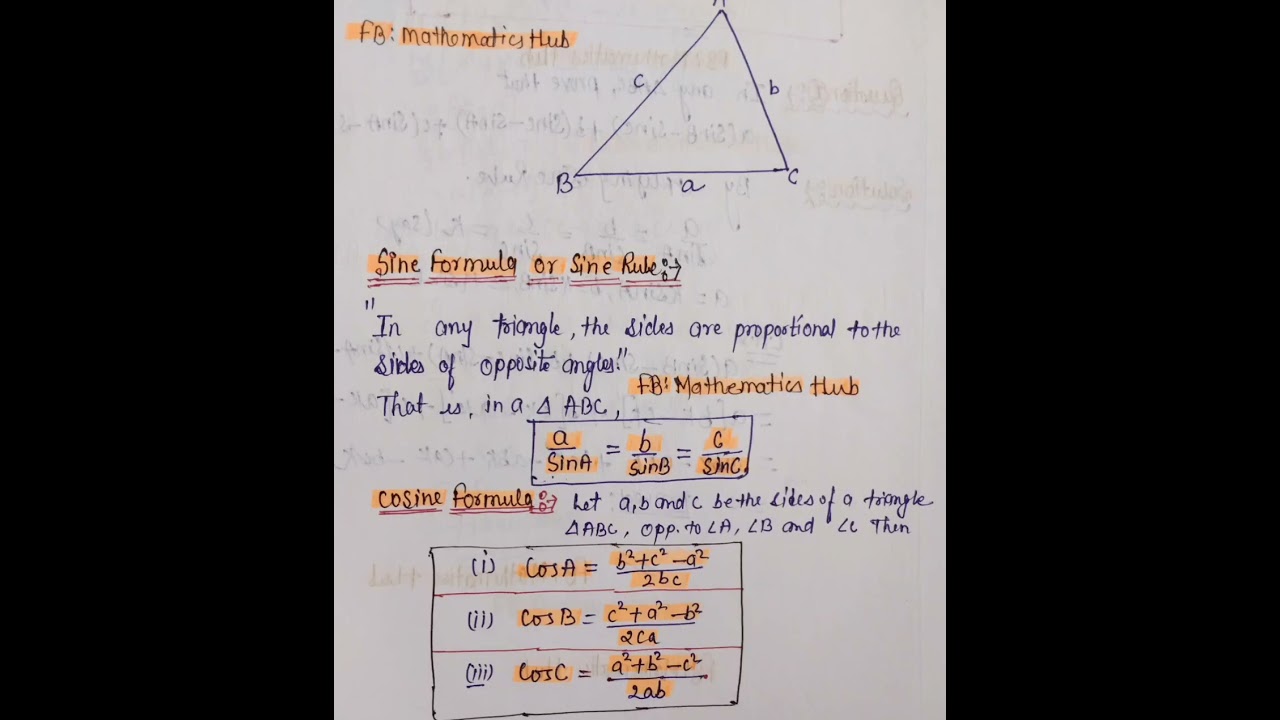 FB: Mathematics Hub
A
c
b
B
a
C
Sine Formula or Sine Rule:→
"In any triangle, the sides are proportional to the
sides of opposite angles."
FB: Mathematics Hub
That is, in a △ ABC,
a/SinA = b/sinB = c/sinC
Cosine Formula:→ Let a, b and c be the sides of a triangle
△ABC, opp. to ∠A, ∠B and ∠c Then
(i) CosA = b²+c²-a²/2bc
(ii) CosB = c²+a²-b²/2ca
(iii) CosC = a²+b²-c²/2ab